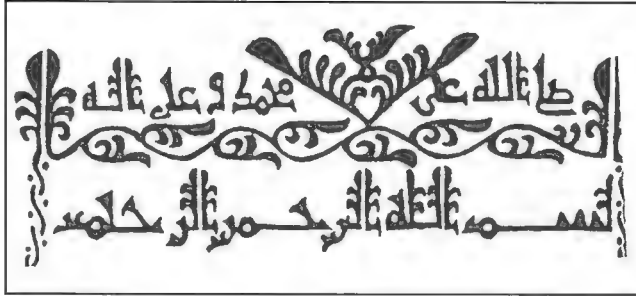 صلى الله على محمد و على اله
بسم الله الرحمن الرحيم